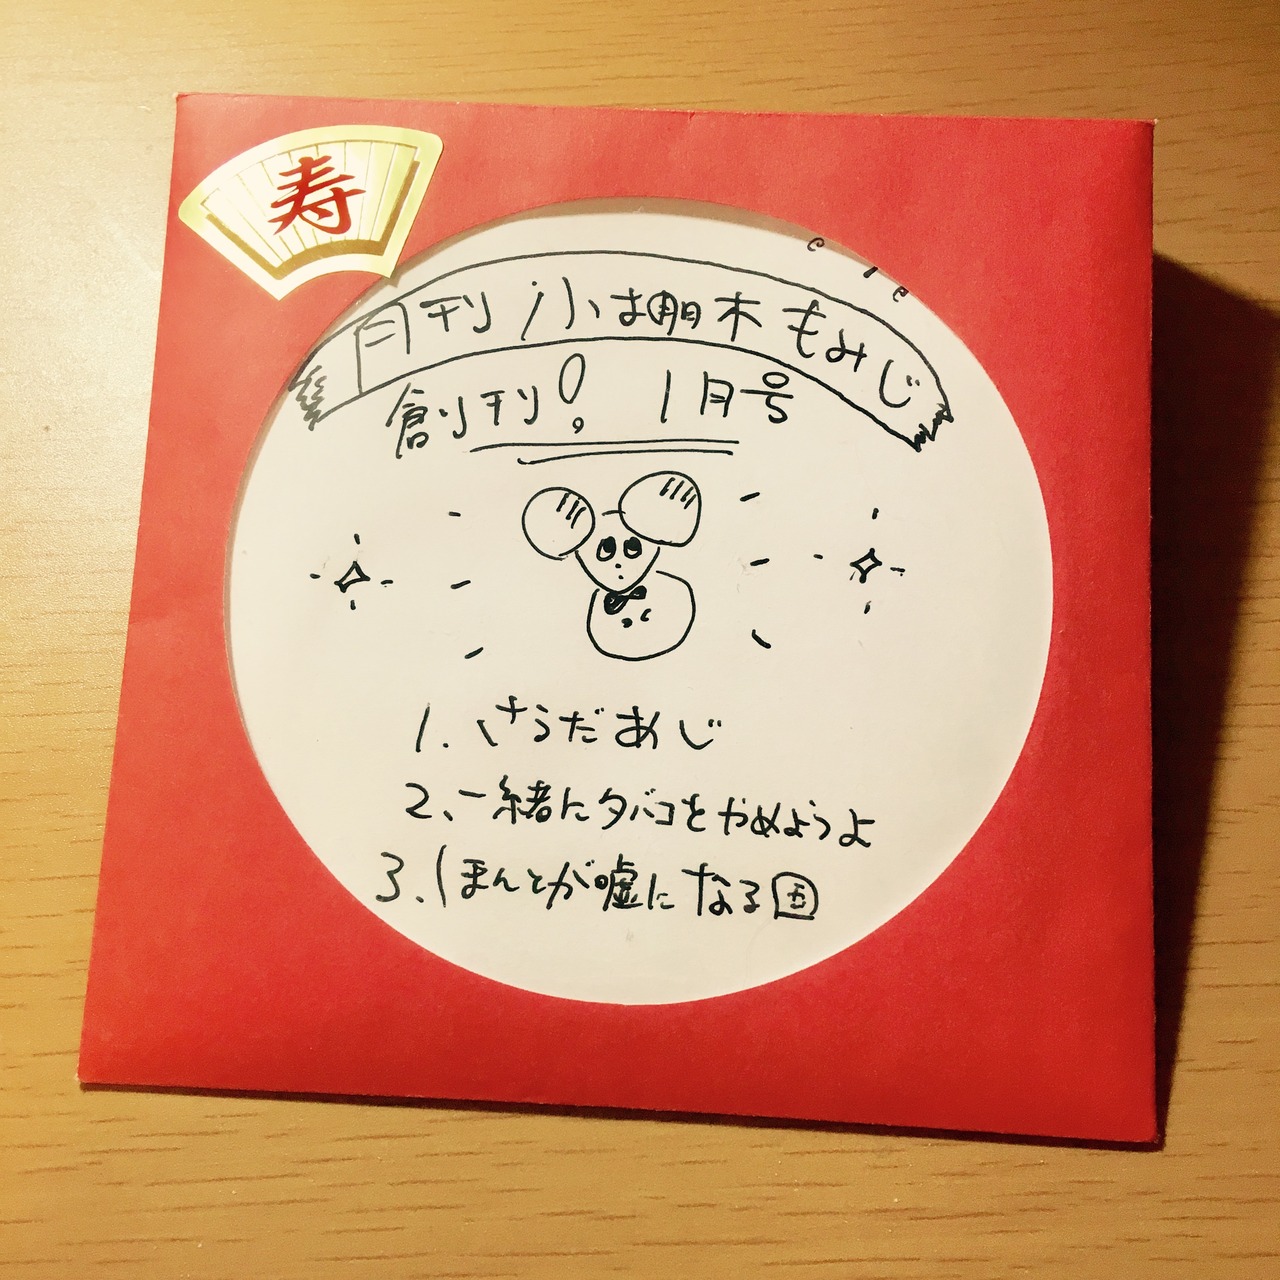 寿
月刊 小棚木もみじ
創刊! 1月号
1. さうだあじ
2. 一緒にタバコをやめようよ
3. ほんとが嘘になる国